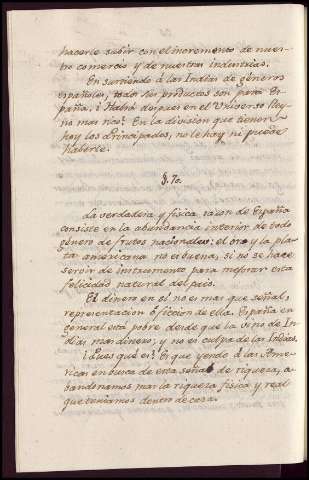 hacerle subir con el incremento de nues-
tro comercio y de nuestras industrias.
En surtiendo á las Indias de géneros
españoles, todos sus productos son para Es-
paña. ¿Habrá despues en el Universo Rey-
no mas rico? En la division que tienen
hoy los Principados, no le hay ni puede
haberle.
§. 70.
La verdadera y fisica razon de España
consiste en la abundancia interior de todo
género de frutos nacionales: el oro y la pla-
ta americana no es buena, si no se hace
servir de instrumento para mejorar esta
felicidad natural del pais.
El dinero en sí no es mas que señal,
representacion ó ficcion de ella. España en
general está pobre desde que la vino de In-
dias mas dinero; y no es culpa de las Indias.
¿Pues qué es? Es que yendo á las Ame-
ricas en busca de esta señal de riqueza, a-
bandonamos mas la riqueza fisica y real
que teniamos dentro de casa.